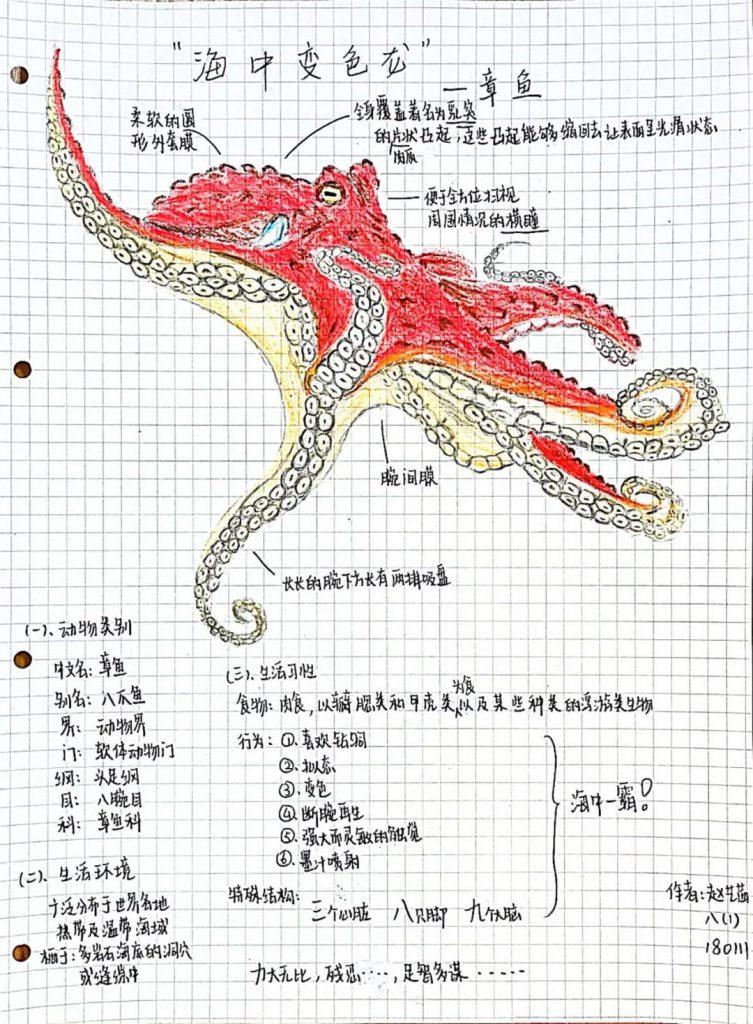 "海中变色龙"
——章鱼
柔软的圆
形外套膜
全身覆盖着名为乳突
的片状凸起,这些凸起能够缩回去让表面呈光滑状态
肉质
便于全方位扫视
周围情况的横瞳
腕间膜
长长的腕下方长有两排吸盘
(一)、动物类别
中文名:章鱼
别名:八爪鱼
界:动物界
门:软体动物门
纲:头足纲
目:八腕目
科:章鱼科
(二)、生活环境
广泛分布于世界各地
热带及温带海域
栖于:多岩石海底的洞穴
或缝隙中
(三)、生活习性
食物:肉食,以瓣鳃类和甲壳类为食以及某些种类的浮游类生物
行为:①喜欢钻洞
②拟态
③变色
④断腕再生
⑤强大而灵敏的触觉
⑥墨汁喷射
海中一霸!
特殊结构:三个心脏 八只脚 九个大脑
力大无比,残忍····,足智多谋······
作者:赵
八(1)
180111